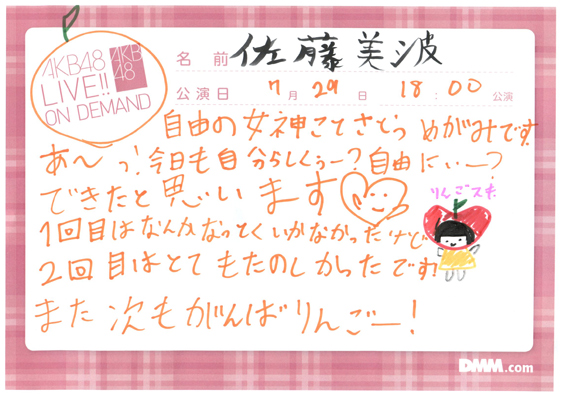 AKB48
LIVE!!
ON DEMAND
AKB
48
名 前 佐藤美波
公演日 7月29日 18:00公演
自由の女神ことさとう めがみです
あ〜っ!今日も自分らしくぅー?自由にぃー?
できたと思います
りんごスキ
1回目はなんかなっとくいかなかったけど
2回目はとてもたのしかったです!
また次もがんばりんごー!
DMM.com